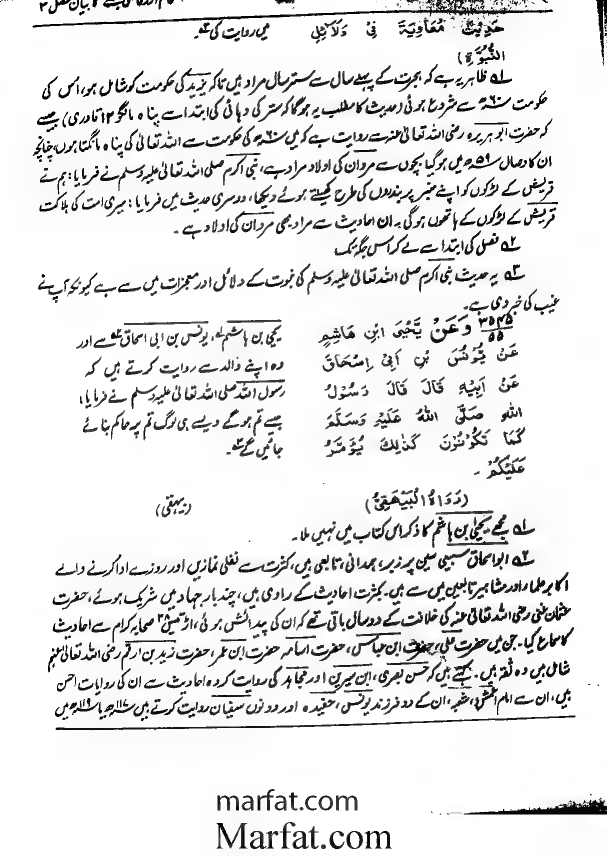 حَدِيْثَ مُعَاوِيَةَ فِيْ دَلَائِلِ میں روایت کی ؎
النُّبُوَّةِ)
؎۱ ظاہر یہ ہے کہ ہجرت کے پہلے سال سے ستر سال مراد ہیں تاکہ یزید کی حکومت کو شامل ہو، اس کی
حکومت ۶۰ھ سے شروع ہوئی (حدیث کا مطلب یہ ہوگا کہ ستر کی دہائی کی ابتدا سے پناہ مانگو ۱۲ قادری) جیسے
کہ حضرت ابو ہریرہ رضی اللہ تعالیٰ عنہ سے روایت ہے کہ میں ۶۰ھ کی حکومت سے اللہ تعالیٰ کی پناہ مانگتا ہوں، چنانچہ
ان کا وصال ۵۹ھ میں ہو گیا بچوں سے مروان کی اولاد مراد ہے، نبی اکرم صلی اللہ تعالیٰ علیہ وسلم نے فرمایا: ہم نے
قریش کے لڑکوں کو اپنے منبر پر بندروں کی طرح کھیلتے ہوئے دیکھا، دوسری حدیث میں فرمایا: میری امت کی ہلاکت
قریش کے لڑکوں کے ہاتھوں ہوگی۔ ان احادیث سے مراد بھی مروان کی اولاد ہے۔
؎۲ فصل کی ابتدا سے لے کر اس جگہ تک
؎۳ یہ حدیث نبی اکرم صلی اللہ تعالیٰ علیہ وسلم کی نبوت کے دلائل اور معجزات میں سے ہے کیونکہ آپ نے
غیب کی خبر دی ہے۔
۳۵۴۵/۵۵ وَعَنْ يَحْيَى ابْنِ هَاشِمٍ یحیٰی بن ہاشم ؎۱، یونس بن ابی اسحاق ؎۲ سے اور
عَنْ يُوْنُسَ بْنِ أَبِيْ إِسْحَاقَ وہ اپنے والد سے روایت کرتے ہیں کہ
عَنْ أَبِيْهِ قَالَ قَالَ رَسُوْلُ رسول اللہ صلی اللہ تعالیٰ علیہ وسلم نے فرمایا:
اللهِ صَلَّى اللهُ عَلَيْهِ وَسَلَّمَ جیسے تم ہوگے ویسے ہی لوگ تم پر حاکم بنائے
كَمَا تَكُوْنُوْنَ كَذٰلِكَ يُؤَمَّرُ جائیں گے ؎۳۔
عَلَيْكُمْ۔
(رَوَاهُ الْبَيْهَقِيُّ) (بیہقی)
؎۱ مجھے یحیٰی بن ہاشم کا ذکر اس کتاب میں نہیں ملا۔
؎۲ ابو اسحاق سبیعی سین پر زبر، ہمدانی، تابعی ہیں، کثرت سے نفلی نمازیں اور روزے ادا کرنے والے
اکابر علماء اور مشاہیر تابعین میں سے ہیں۔ بکثرت احادیث کے راوی ہیں، چند بار جہاد میں شریک ہوئے، حضرت
عثمان غنی رضی اللہ تعالیٰ عنہ کی خلافت کے دو سال باقی تھے کہ ان کی پیدائش ہوئی، اڑتیس ۳۸ صحابہ کرام سے احادیث
کا سماع کیا۔ جن میں حضرت علی، حضرت ابن عباس، حضرت اسامہ، حضرت ابن عمر، حضرت زید بن ارقم رضی اللہ تعالیٰ عنہم
شامل ہیں وہ ثقہ ہیں۔ کہتے ہیں کہ حسن بصری، ابن سیرین اور مجاہد کی روایت کردہ احادیث سے ان کی روایات احسن
ہیں، ان سے امام اعمش، شعبہ، ان کے دو فرزند یونس، حفیدہ اور دونوں سفیان روایت کرتے ہیں ۱۱۸ھ یا ۱۱۹ھ میں
marfat.com
Marfat.com